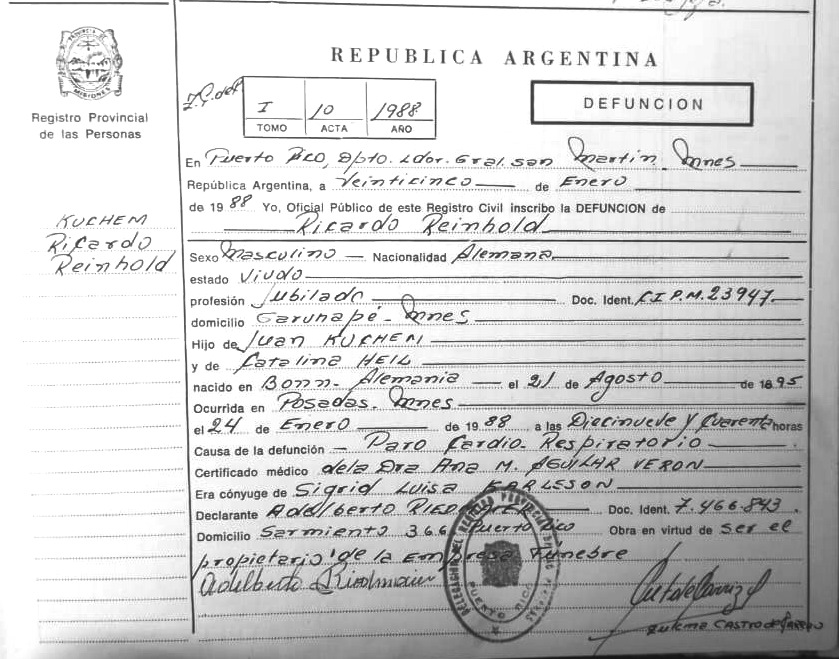 REPUBLICA ARGENTINA
PROVINCIA DE MISIONES
Registro Provincial
de las Personas
I 10 1988
TOMO ACTA AÑO
DEFUNCION
En Puerto Rico, Dpto. Ldor. Gral. San Martin. Mnes
República Argentina, a Veinticinco de Enero
de 1988 Yo, Oficial Público de este Registro Civil inscribo la DEFUNCION de
Ricardo Reinhold
KUCHEM
Ricardo
Reinhold
Sexo Masculino Nacionalidad Alemana
estado Viudo
profesión Jubilado Doc. Ident. C I P.M. 23947.
domicilio Garuhapé - Mnes
Hijo de Juan KUCHEM
y de Catalina HEIL
nacido en Bonn - Alemania el 21 de Agosto de 1895
Ocurrida en Posadas. Mnes
el 24 de Enero de 1988 a las Diecinueve y Cuarenta horas
Causa de la defunción Paro Cardio-Respiratorio
Certificado médico de la Dra Ana M. AGUILAR VERON
Era cónyuge de Sigrid Luisa KARLESON
Declarante Adelberto Doc. Ident. 7.466.843.
Domicilio Sarmiento 366 Puerto Rico Obra en virtud de ser el
propietario de la Empresa Fúnebre
PUERTO RICO
Zulema CASTRO de